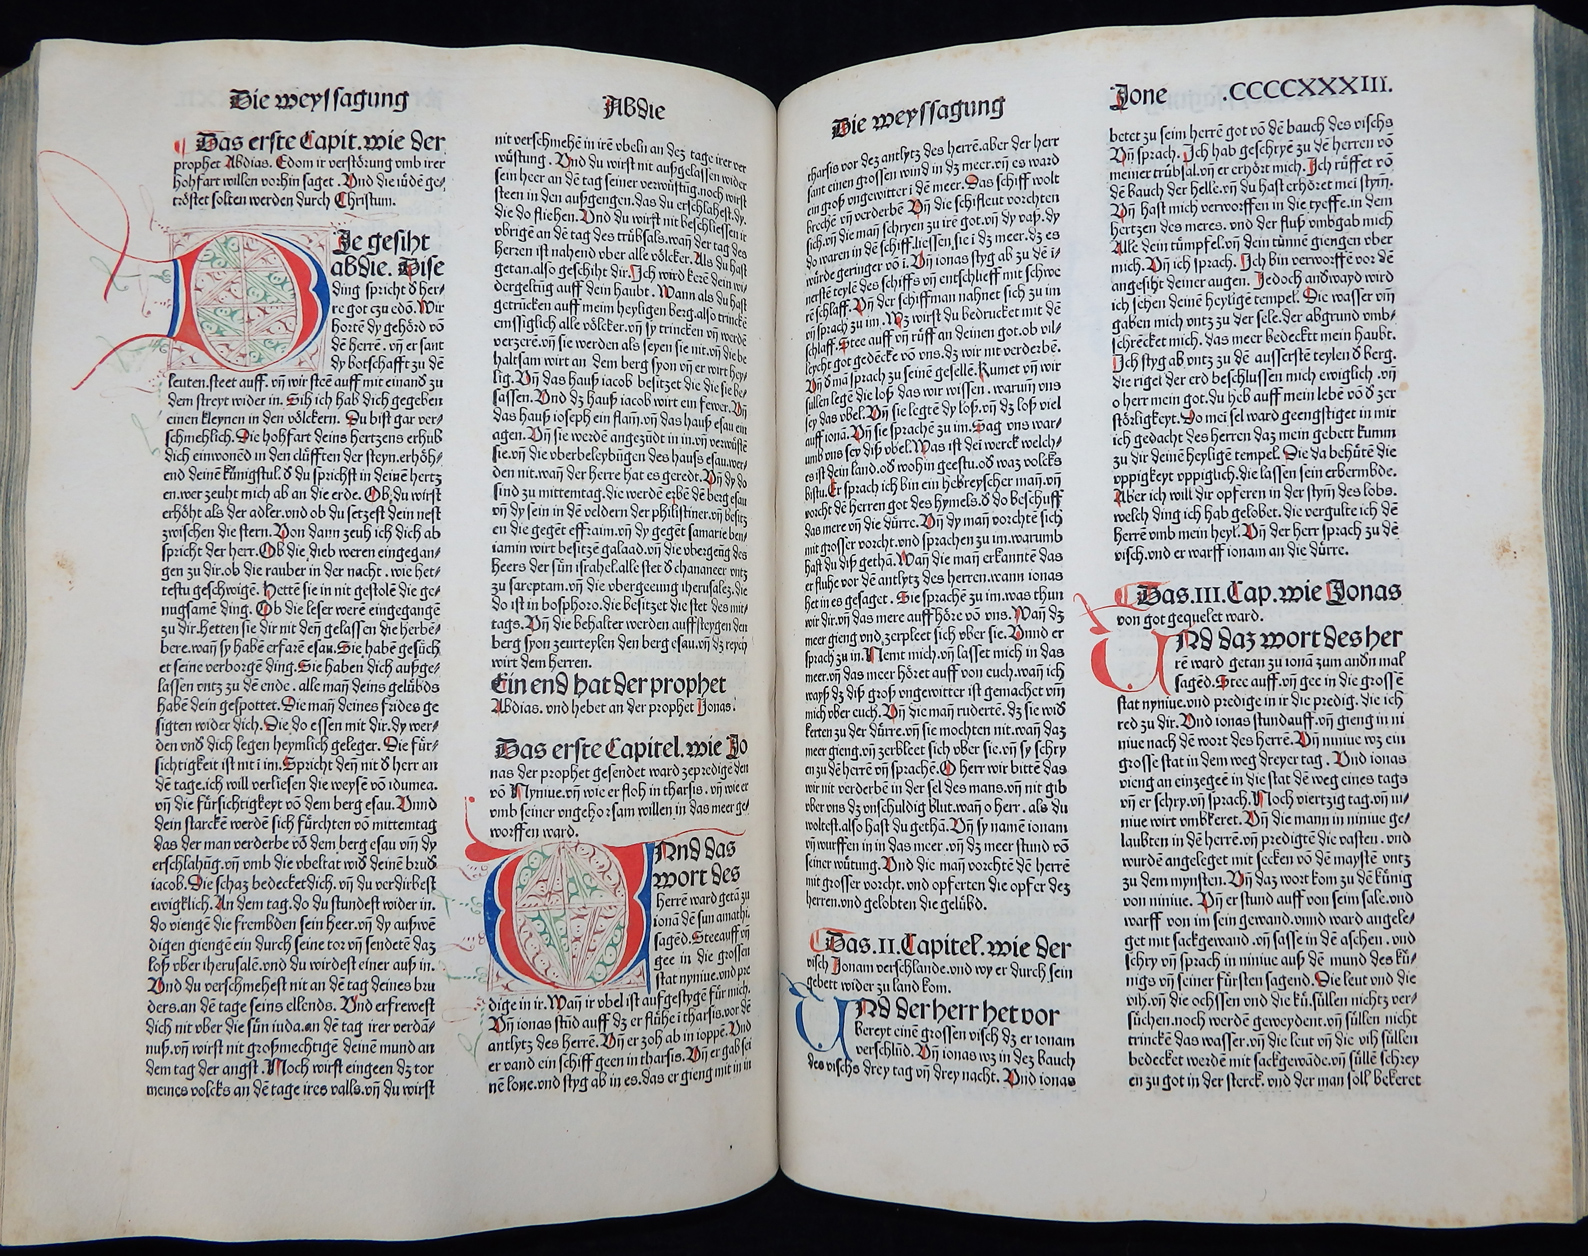 Die weyssagung
Abdie
Das erste Capit. wie der
prophet Abdias. Edom ir verstörung vmb irer
hohfart willen vorhin saget. Vnd die iüdē ge⸗
tröstet solten werden durch Christum.
DJe gesiht
abdie. Dise
ding spricht d̕ her⸗
re got czu edō. Wir
hortē dy gehörd vō
dē herrē. vñ er sant
dy botschafft zu dē
leuten. steet auff. vñ wir steē auff mit einand̕ zu
dem streyt wider in. Sih ich hab dich gegeben
einen kleynen in den völckern. Du bist gar ver⸗
schmehlich. Die hohfart deins hertzens erhub
dich einwonēd in den clüfften der steyn. erhöh⸗
end deinē künigstul. d̕ du sprichst in deinē hertz
en. wer zeuht mich ab an die erde. Ob du wirst
erhöht als der adler. vnd ob du setzest dein nest
zwischen die stern. Von dann zeuh ich dich ab
spricht der herr. Ob die dieb weren eingegan⸗
gen zu dir. ob die rauber in der nacht. wie het⸗
testu geschwigē. Hettē sie in nit gestolē die ge⸗
nugsamē ding. Ob die leser werē eingegangē
zu dir. hetten sie dir nit deñ gelassen die herbē⸗
bere. wañ sy habē erfarē esau. Sie habē gesüch
et seine verborgē ding. Sie haben dich außge⸗
lassen vntz zu dē ende. alle mañ deins gelübds
habē dein gespottet. Die mañ deines frides ge
sigten wider dich. Die do essen mit dir. dy wer⸗
den vnd̕ dich legen heymlich geleger. Die für⸗
sichtigkeit ist nit i im. Spricht deñ nit d̕ herr an
dē tage. ich will verliesen die weysē vō idumea.
vñ die fürsichtigkeyt vō dem berg esau. Vnnd
dein starckē werdē sich fürchten vō mittemtag
das der man verderbe vō dem berg esau vñ dy
erschlahūg. vñ vmb die vbeltat wid̕ deinē brud̕
iacob. Die schaz bedecket dich. vñ du verdirbest
ewigklich. An dem tag. do du stundest wider in.
do viengē die frembden sein heer. vñ dy außwē
digen giengē ein durch seine tor vñ sendetē daz
loß vber iherusalē. vnd du wirdest einer auß in.
Vnd du verschmehest nit an dē tag deines bru
ders. an dē tage seins ellends. Vnd erfrewest
dich nit vber die sün iuda. an dē tag irer verdā⸗
nuß. vñ wirst nit großmechtigē deinē mund an
dem tag der angst. Noch wirst eingeen dz tor
meines volcks an dē tage ires valls. vñ du wirst
nit verschmehē in irē vbeln an dez tage irer ver
wüstung. Vnd du wirst nit außgelassen wider
sein heer an dē tag seiner verwüstūg. noch wirst
steen in den außgengen. das du erschlahest. dy.
die do fliehen. Vnd du wirst nit beschliessen ir
vbrigē an dē tag des trübsals. wañ der tag des
Herzen ist nahend vber alle völcker. Als du hast
getan. also geschiht dir. Ich wird kerē dein wi⸗
dergeltig auff dein haubt. Wann als du hast
getrücken auff meim heyligen berg. also trinckē
emssiglich alle völcker. vñ sy trincken vñ werdē
verzerē. vñ sie werden als seyen sie nit. vñ die be
haltsam wirt an dem berg syon vñ er wirt hey⸗
lig. Vñ das hauß iacob besitzet die die sie be⸗
sassen. Vnd dz hauß iacob wirt ein fewer. Vñ
das hauß ioseph ein flam. vñ das hauß esau ein
agen. Vñ sie werdē angezüdt in in. vñ verwüstē
sie. vñ die vberbeleybūgen des hauß esau. wer⸗
den nit. wañ der herre hat es geredt. Vñ dy do
sind zu mittemtag. die werdē erbē dē berg esau
vñ dy sein in dē veldern der philistiner. vñ besitz
en die gegēt effraim. vñ dy gegēt samarie ben⸗
iamin wirt besitzē galaad. vñ die vbergeng des
heers der sün israhel. alle stet d̕ chananeer vntz
zu sareptam. vñ die vbergeeung iherusalez. die
do ist in bosphoro. die besitzet die stet des mit⸗
tags. Vñ die behalter werden auffsteygen den
berg syon zeurteylen den berg esau. vñ dz reych
wirt dem herren.
Ein end hat der prophet
Abdias. vnd hebet an der prophet Jonas.
Das erste Capitel. wie Jo
nas der prophet gesendet ward zepredigē den
vō Nyniue. vñ wie er floh in tharsis. vñ wie er
vmb seiner vngehorsam willen in das meer ge⸗
worffen ward.
UNd das
wort des
herrē ward getā zu
ionā dē sun amathi.
sagēd. Stee auff vñ
gee in die grossen
stat nyniue. vnd pre
dige in ir. Wañ ir vbel ist auffgestygē für mich.
Vñ ionas stūd auff dz er flühe i tharsis. vor dē
antlytz des herrē. Vñ er zoh ab in ioppē. Vnd
er vand ein schiff geen in tharsis. Vñ er gab sei
nē lone. vnd styg ab in es. das er gieng mit in in
Die weyssagung
Jone
.CCCCXXXIII.
tharsis vor dez antlytz des herrē. aber der herr
sant einen grossen wind in dz meer. vñ es ward
ein groß vngewitter i dē meer. Das schiff wolt
brechē vñ verderbē Vñ die schifleut vorchten
sich. vñ die mañ schryen zu irē got. vñ dy vaß. dy
do waren in dē schiff. liessen. sie i dz meer. dz es
würde geringer vō i. Vñ ionas styg ab zu dē i⸗
nerstē teylē des schiffs vñ entschlieff mit schwe
rē schlaff. Vñ der schiffman nahnet sich zu im
vñ sprach zu im. Wz wirst du bedrucket mit dē
schlaff. Stee auff vñ rüff an deinen got. ob vil⸗
leycht got gedēcke vō vns. dz wir nit verderbē.
Vñ d̕ mā sprach zu seinē gesellē. Kumet vñ wir
süllen legē die loß das wir wissen. warum vns
sey das vbel. Vñ sie legtē dy loß. vñ dz loß viel
auff ionā. Vñ sie sprachē zu im. Sag vns war⸗
umb vns sey diß vbel. Was ist dei werck welch⸗
es ist dein land. od̕ wohin geestu. od̕ waz volcks
bistu. Er sprach ich bin ein hebreyscher mañ. vñ
vorcht dē herren got des hymels. d̕ do beschuff
das mere vñ die dürre. Vñ dy mañ vorchtē sich
mit grosser vorcht. vnd sprachen zu im. warumb
hast du diß gethā. Wañ die mañ erkanntē das
er fluhe vor dē antlytz des herren. wann ionas
het in es gesaget. Sie sprachē zu im. was thun
wir dir. vñ das mere auff höre vō vns. Wañ dz
meer gieng vnd zerpleet sich vber sie. Vnnd er
sprach zu in. Nemt mich. vñ lasset mich in das
meer. vñ das meer höret auff von euch. wañ ich
wayß dz diß groß vngewitter ist gemachet vm
mich vber euch. Vñ die mañ rudertē. dz sie wid̕
kerten zu der dürre. vñ sie mochten nit. wañ daz
meer gieng. vñ zerbleet sich vber sie. vñ sy schry
en zu dē herrē vñ sprachē. O herr wir bittē das
wir nit verderbē in der sel des mans. vñ nit gib
vber vns dz vnschuldig blut. wañ o herr. als du
woltest. also hast du gethā. Vñ sy namē ionam
vñ wurffen in in das meer. vñ dz meer stund vō
seiner wütung. Vnd die mañ vorchtē dē herrē
mit grosser vorcht. vnd opferten die opfer dez
herren. vnd gelobten die gelübd.
Das. II. Capitel. wie der
visch Jonam verschlande. vnd wy er durch sein
gebett wider zu land kom.
UNd der herr het vor
bereyt einē grossen visch dz er ionam
verschlūd. Vñ ionas wz in dez bauch
des vischs drey tag vñ drey nacht. Vnd ionas
betet zu seim herrē got vō dē bauch des vischs
Vñ sprach. Jch hab geschryē zu dē herren vō
meiner trübsal. vñ er erhört mich. Jch rüffet vō
dē bauch der helle. vñ du hast erhöret mei stym.
Vñ hast mich verworffen in die tyeffe. in dem
hertzen des meres. vnd der fluß vmbgab mich
Alle dein tümpfel. vñ dein tünnē giengen vber
mich. Vñ ich sprach. Jch bin verworffē vor dē
angesiht deiner augen. Jedoch and̕wayd wird
ich sehen deinē heyligē tempel. Die wasser vm̄
gaben mich vntz zu der sele. der abgrund vmb⸗
schrēcket mich. das meer bedecket mein haubt.
Jch styg ab vntz zu dē ausserstē teylen d̕ berg.
die rigel der erd beschlussen mich ewiglich. vñ
o herr mein got. du heb auff mein lebē vō d̕ zer
störligkeyt. Do mei sel ward geengstiget in mir
ich gedacht des herren daz mein gebett kumm
zu dir deinē heyligē tempel. Die da behütē die
vppigkeyt vppiglich. die lassen sein erbermbde.
Aber ich will dir opferen in der stym des lobs.
welch ding ich hab gelobet. die vergulte ich dē
herrē vmb mein heyl. Vñ der herr sprach zu dē
visch. vnd er warff ionam an die dürre.
Das. III. Cap. wie Jonas
von got gequelet ward.
UNd daz wort des her
rē ward getan zu ionā zum andn̄ mal
sagēd. Stee auff. vñ gee in die grossē
stat nyniue. vnd predige in ir die predig. die ich
red zu dir. Vnd ionas stund auff. vñ gieng in ni
niue nach dē wort des herrē. Vñ niniue wz ein
grosse stat in dem weg dreyer tag. Vnd ionas
vieng an einzegeē in die stat dē weg eines tags
vñ er schry. vñ sprach. Noch viertzig tag. vñ ni⸗
niue wirt vmbkeret. Vñ die mann in niniue ge⸗
laubten in dē herrē. vñ predigtē die vasten. vnd
wurdē angeleget mit secken vō dē maystē vntz
zu dem mynsten. Vñ daz wort kom zu dē künig
von niniue. Vñ er stund auff von seim sale. vnd
warff von im sein gewand. vnnd ward angele⸗
get mit sackgewand. vñ sasse in dē aschen. vnd
schry vñ sprach in niniue auß dē mund des kü⸗
nigs vñ seiner fürsten sagend. Die leut vnd die
vih. vñ die ochssen vnd die kü. süllen nichtz ver⸗
süchen. noch werdē geweydent. vñ süllen nicht
trinckē das wasser. vñ die leut vñ die vih süllen
bedecket werdē mit sackgewāde. vñ süllē schrey
en zu got in der sterck. vnd der man soll bekeret